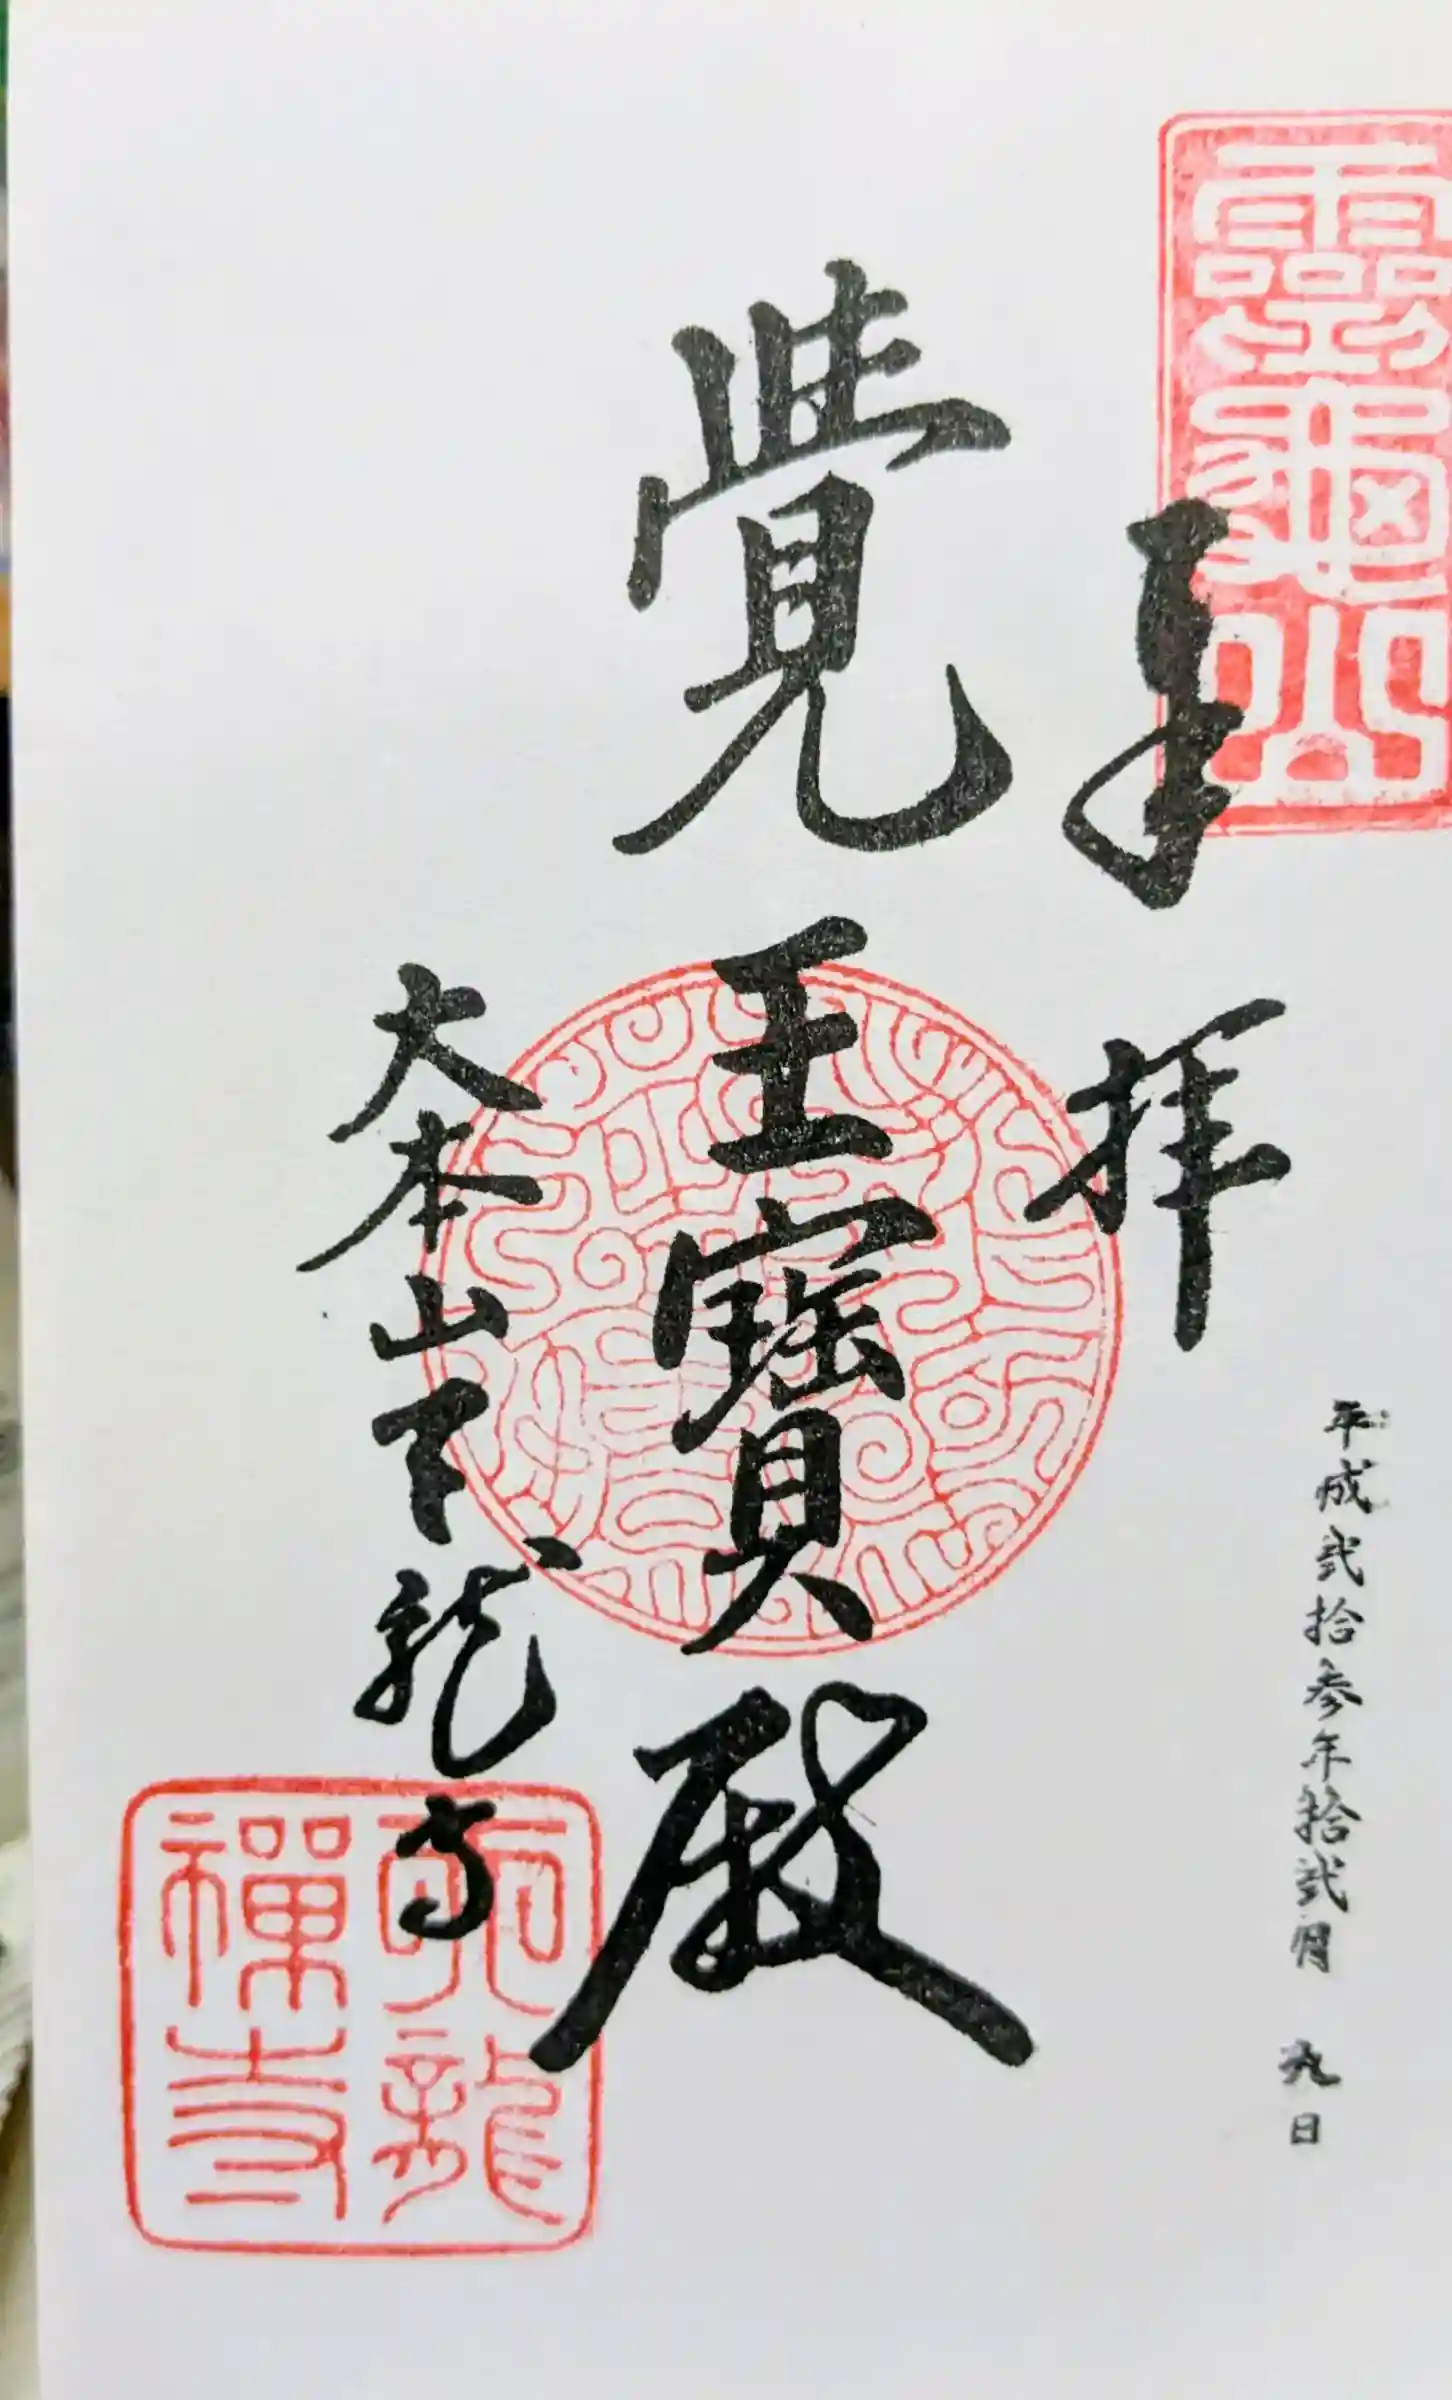 靈龜山
奉拝
平成弐拾参年拾弐月九日
覺王寶殿
大本山天龍寺
天龍
禅寺